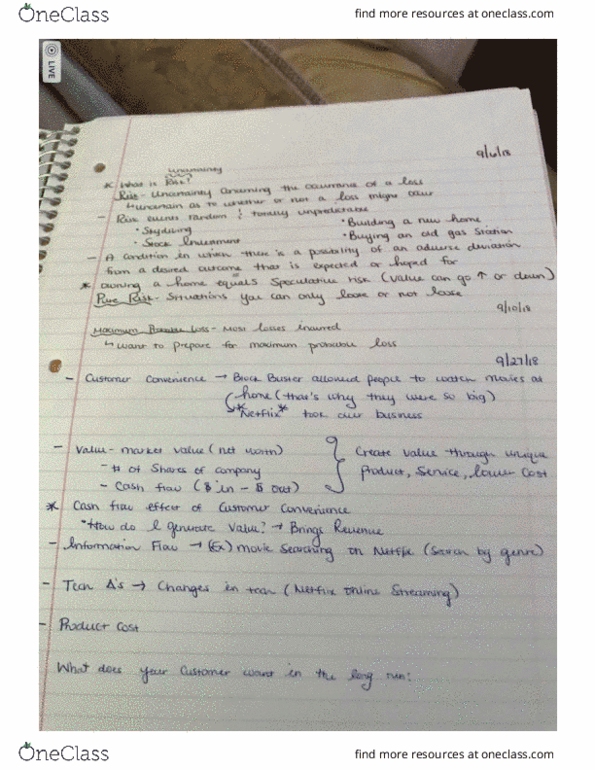 OneClass
find more resources at oneclass.com
LIVE
9/6/18
uncertainty
* What is Risk?
Risk - Uncertainty concerning the occurrence of a loss
↳ uncertain as to whether or not a loss might occur
- Risk events random & totally unpredictable
• Skydiving
• Building a new home
• Stock Investment
• Buying an old gas Station
- A condition in which there is a possibility of an adverse deviation
from a desired outcome that is expected or hoped for
* owning a home equals Speculative risk (value can go ↑ or down)
Pure Risk - Situations you can only loose or not loose
9/10/18
Maximum Loss - Most losses insured
↳ want to prepare for maximum probable loss
9/27/18
- Customer Convenience → Block Buster allowed people to watch movies at
home (that's why they were so big)
*Netflix* took over business
- Value - market value (net worth)
- # of Shares of company
- Cash flow ($ in - $ out)
Create value through unique
Product, Service, lower Cost
* Cash flow effect of Customer Convenience
• How do I generate Value? → Brings Revenue
- Information Flow → (Ex) movie Searching on Netflix (Search by genre)
- Tech Δ's → Changes in tech (Netflix online Streaming)
- Product Cost
What does your Customer want in the long run?
OneClass
find more resources at oneclass.com